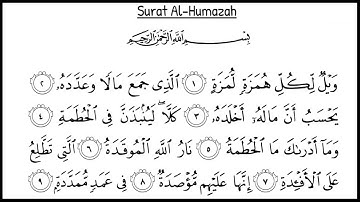 Surat Al-Humazah
بِسْمِ اللَّهِ الرَّحْمَٰنِ الرَّحِيمِ
وَيْلٌ لِّكُلِّ هُمَزَةٍ لُّمَزَةٍ ١ الَّذِي جَمَعَ مَالًا وَعَدَّدَهُۥ ٢
يَحْسَبُ أَنَّ مَالَهُۥٓ أَخْلَدَهُۥ ٣ كَلَّا ۖ لَيُنۢبَذَنَّ فِي الْحُطَمَةِ ٤
وَمَآ أَدْرَىٰكَ مَا الْحُطَمَةُ ٥ نَارُ اللَّهِ الْمُوقَدَةُ ٦ الَّتِي تَطَّلِعُ
عَلَى الْأَفْـِٔدَةِ ٧ إِنَّهَا عَلَيْهِم مُّؤْصَدَةٌ ٨ فِي عَمَدٍ مُّمَدَّدَةٍ ٩